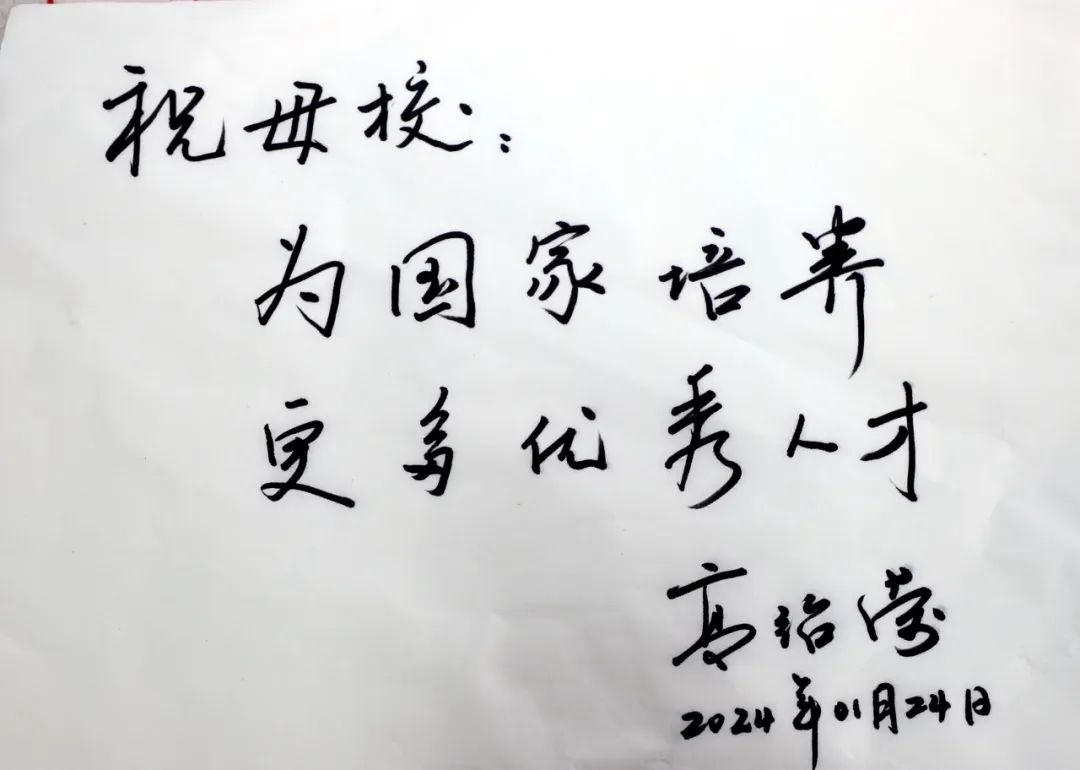 祝母校：
为国家培养
更多优秀人才
高
2024年01月24日